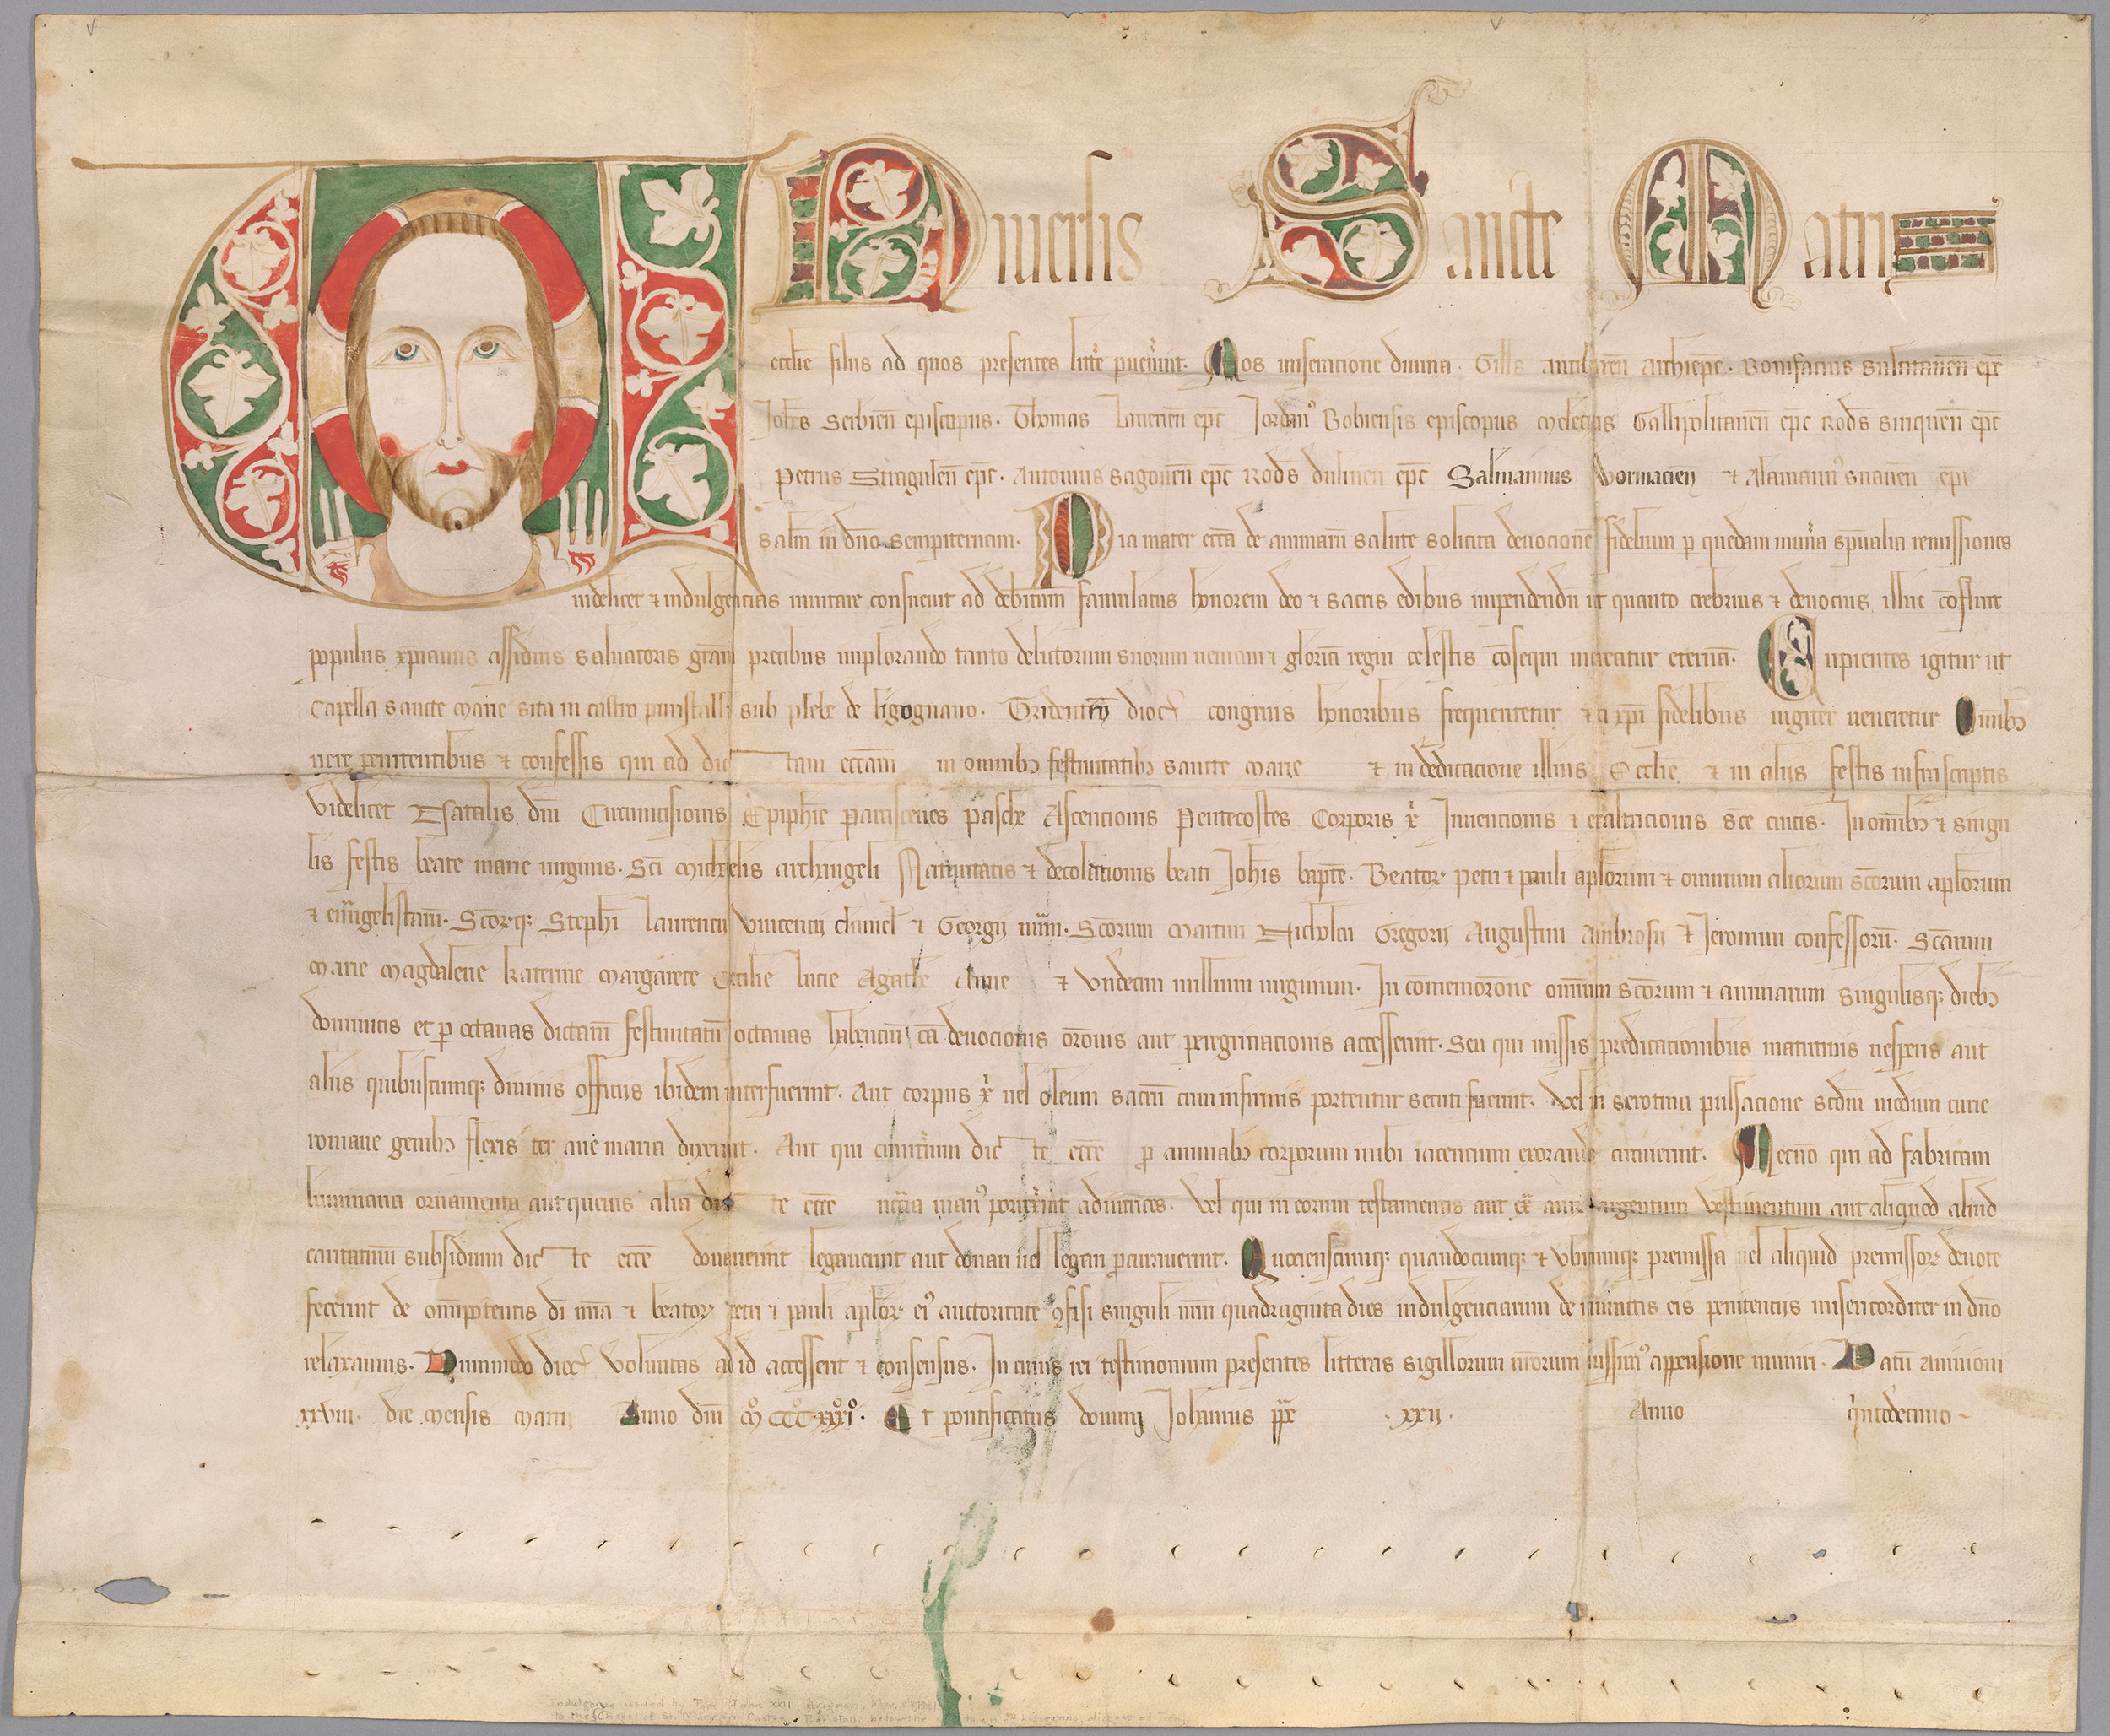 UNiuersis Sancte Matris
ecclie filiis ad quos presentes littre puenerint. Nos miseracione diuina. Archiepc. Bonifacius epc
Johes episcopus. Thomas epc Jordan9 Bobiensis episcopus Meletius Gallipolitanen epc Rods epc
Petrus Stragulen epc. Antonius Sagonen epc Rods epc Salmannus Wormacien et epi
salm in dno sempiternam. Pia mater eccia de animarum salute solicita deuocionem fidelium p quedam munera spualia remissiones
uidelicet et indulgencias inuitare consueuit ad debitum famulatus honorem deo et sacris edibus impendendum ut quanto crebrius et deuocius illuc confluit
populus xpianus assiduis saluatoris gram precibus implorando tanto delictorum suorum ueniam et gloriam regni celestis consequi mereatur eternam. Cupientes igitur ut
Capella sancte Marie sita in castro sub plebe de ligognano. Tridentin dioc congruis honoribus frequentetur et a xpi fidelibus iugiter ueneretur Omnib3
uere penitentibus et confessis qui ad dictam ecciam in omnib3 festiuitatib3 sancte Marie et in dedicacione illius Ecclie et in aliis festis infrascriptis
Videlicet Natalis dni Circumcisionis Epiphie Parasceues Pasche Ascencionis Pentecostes Corporis xi Inuencionis et exaltacionis sce crucis. In omnib3 et singu
lis festis beate marie uirginis. Sci Michaelis archangeli Natiuitatis et decolacionis beati Johis bapte. Beator petri et pauli aplorum et omnium aliorum scorum aplorum
et euangelistarum. Scorq3 Stephi Laurencii Vincencij et Georgij mrm. Scorum Martini Nicholai Gregorij Augustini Ambrosij et Jeronimi confessorum. Scarum
Marie Magdalene katerine Margarete Cecilie Lucie Agathe Anne et Vndecim millium uirginum. In comemoracone omnium scorum et animarum singulisq3 dieb3
dominicis et p octauas dictarum festiuitatum octauas habencium ca deuocionis oronis aut peregrinacionis accesserint. Seu qui missis predicacionibus matutinis uesperis aut
aliis quibuscunq3 diuinis officijs ibidem interfuerint. Aut corpus xi uel oleum sacrum cum infirmis portentur secuti fuerint. Vel in serotina pulsacione scdm modum curie
romane genib3 flexis ter aue maria dixerint. Aut qui cimiterium dicte eccie p animab3 corporum inibi iacencium exorando circuierint. Necno qui ad fabricam
luminaria ornamenta aut queuis alia dicte eccie necaria man9 porrexerint adiutrices. Vel qui in eorum testamentis aut ex aurum argentum vestimentum aut aliquod aliud
caritatiuum subsidium dicte eccie donauerint legauerint aut donari uel legari pcurauerint. Quocienscunq3 quandocunq3 et vbicunq3 premissa uel aliquid premissor deuote
fecerint de omipotentis di mia et beator petri et pauli aplor ei9 auctoritate 9fisi singuli nrm quadraginta dies indulgenciarum de iniunctis eis penitencijs misericorditer in dno
relaxamus. Dummodo dioc voluntas ad id accesserit et consensus. In cuius rei testimonium presentes litteras sigillorum nrorum iussim9 appensione muniri. Datum Auinioni
xxviii. die Mensis Marcij Anno dni Mo CCCo xxxio. Et pontificatus domini Johannis ppe .xxij. Anno quitodecimo